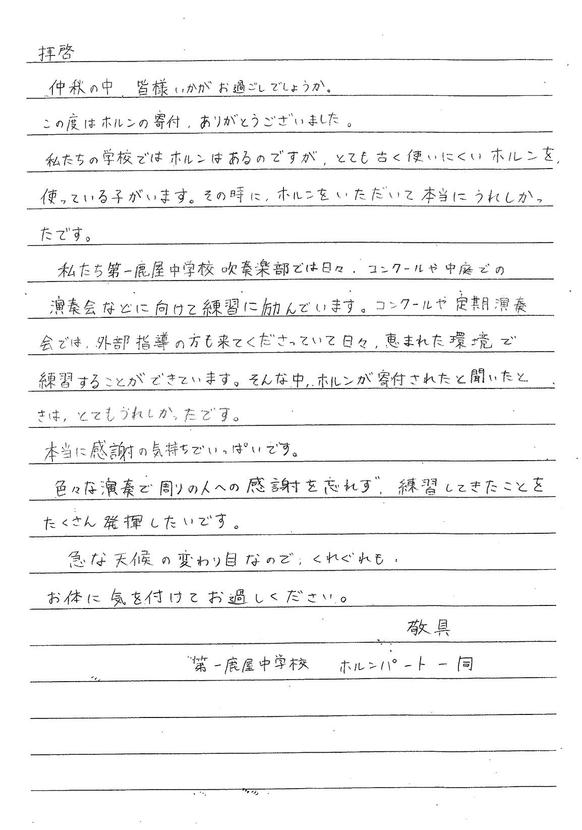 拝啓
仲秋の中、皆様いかがお過ごしでしょうか。
この度はホルンの寄付、ありがとうございました。
私たちの学校ではホルンはあるのですが、とても古く使いにくいホルンを、
使っている子がいます。その時に、ホルンをいただいて本当にうれしかっ
たです。
私たち第一鹿屋中学校吹奏楽部では日々、コンクールや中庭での
演奏会などに向けて練習に励んでいます。コンクールや定期演奏
会では、外部指導の方も来てくださっていて日々、恵まれた環境で
練習することができています。そんな中、ホルンが寄付されたと聞いたと
きは、とてもうれしかったです。
本当に感謝の気持ちでいっぱいです。
色々な演奏で周りの人への感謝を忘れず、練習してきたことを
たくさん発揮したいです。
急な天候の変わり目なので、くれぐれも、
お体に気を付けてお過しください。
敬具
第一鹿屋中学校 ホルンパート一同